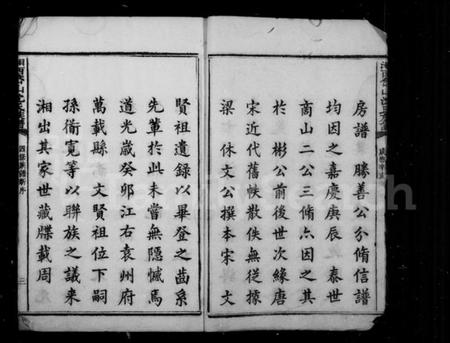 房譜 勝善公分脩信譜
均因之嘉慶庚辰 泰世
商山二公三脩亦因之其
於 彬公前後世次緣唐
宋近代舊帙散佚無從據
梁 休文公撰本宋 文
賢祖遺錄以畢登之茴系
先輩於此未嘗無隱憾焉
道光歲癸卯江右袁州府
萬載縣 文賢祖位下嗣
孫衜寬等以聯族之議來
湘出其家世藏牒載周